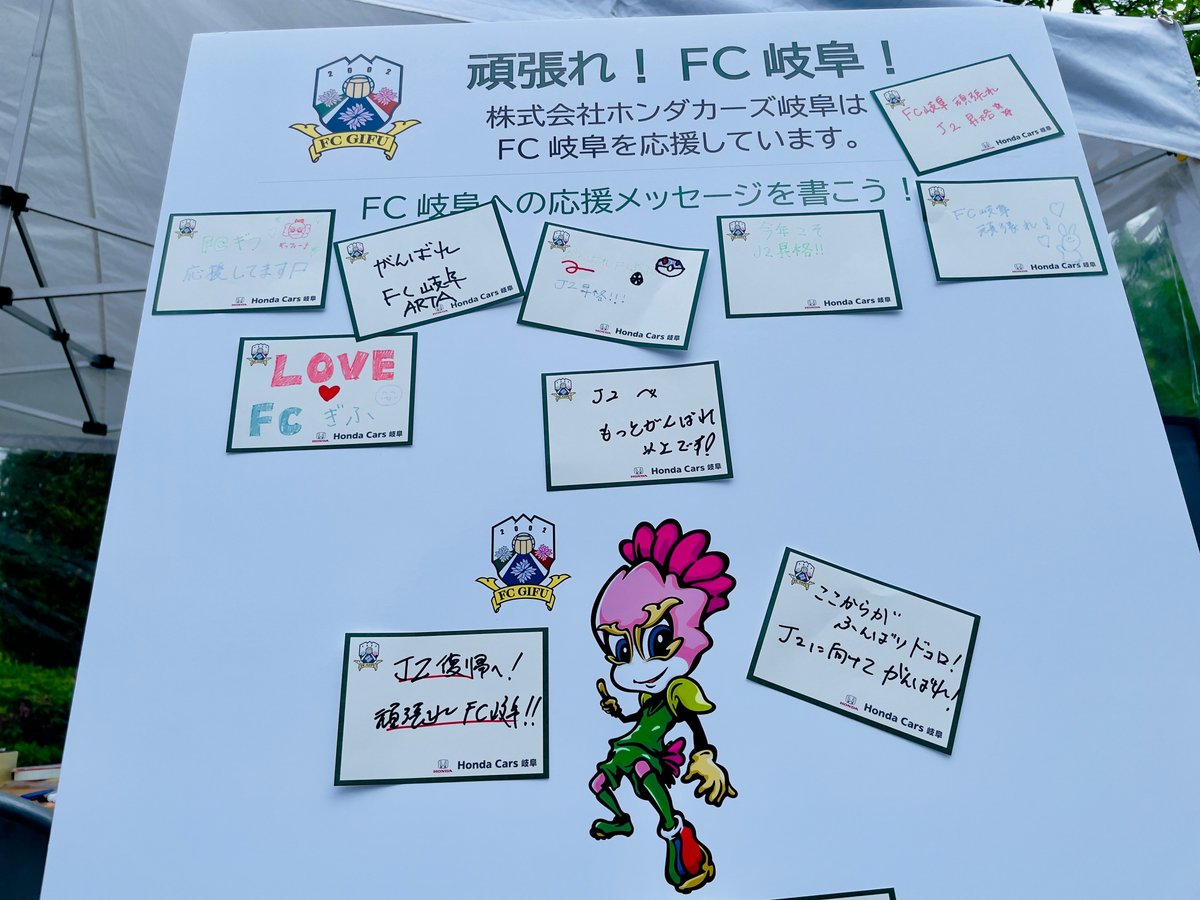 2002
FC GIFU
頑張れ！ FC 岐阜！
株式会社ホンダカーズ岐阜は
FC 岐阜を応援しています。
FC 岐阜への応援メッセージを書こう！
FC岐阜 頑張れ
J2 昇格
HONDA Honda Cars 岐阜
ギふ
応援してます
HONDA Honda Cars 岐阜
がんばれ
FC 岐阜
ARTA
Honda Cars 岐阜
J2昇格!!!
HONDA Honda Cars 岐阜
今年こそ
J2昇格!!
HONDA Honda Cars 岐阜
FC岐阜
頑張れ！
HONDA Honda Cars 岐阜
LOVE
FC ぎふ
HONDA Honda Cars 岐阜
J2 へ
もっとがんばれ
以上です！
HONDA Honda Cars 岐阜
2002
FC GIFU
J2復帰へ！
頑張れ FC岐阜!!
HONDA Honda Cars 岐阜
ここからが
ふんばりドコロ！
J2に向けて がんばれ！
HONDA Honda Cars 岐阜